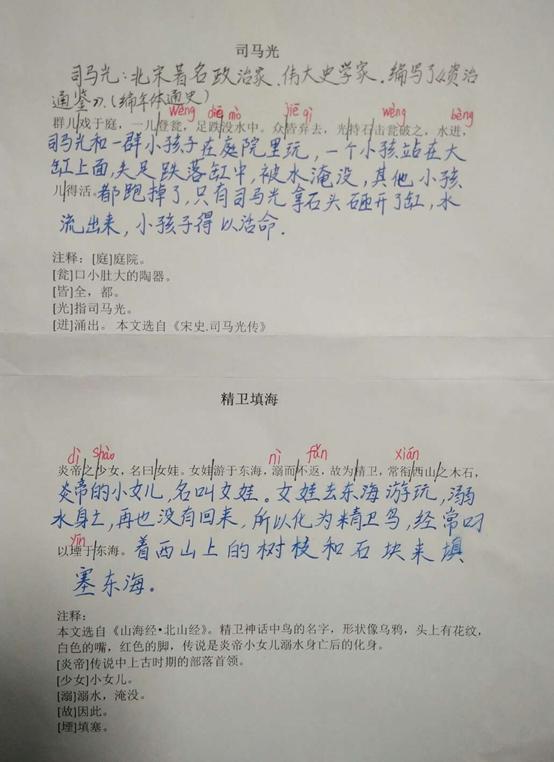 司马光
司马光：北宋著名政治家、伟大史学家，编写了《资治
通鉴》。（编年体通史）
wèng diē mò jiē qì wèng bèng
群儿戏于庭，一儿登瓮，足跌没水中。众皆弃去，光持石击瓮破之，水迸，
司马光和一群小孩子在庭院里玩，一个小孩站在大
缸上面，失足跌落缸中，被水淹没，其他小孩
儿得活。都跑掉了，只有司马光拿石头砸开了缸，水
流出来，小孩子得以活命.
注释：[庭]庭院。
[瓮]口小肚大的陶器。
[皆]全，都。
[光]指司马光。
[迸]涌出。 本文选自《宋史.司马光传》
精卫填海
dì shào nì fǎn xián
炎帝之少女，名曰女娃。女娃游于东海，溺而不返，故为精卫，常衔西山之木石，
炎帝的小女儿，名叫女娃。女娃去东海游玩，溺
水身亡，再也没有回来，所以化为精卫鸟，经常叼
yīn
以堙于东海。着西山上的树枝和石块来填
塞东海。
注释：
本文选自《山海经•北山经》。精卫神话中鸟的名字，形状像乌鸦，头上有花纹，
白色的嘴，红色的脚，传说是炎帝小女儿溺水身亡后的化身。
[炎帝]传说中上古时期的部落首领。
[少女]小女儿。
[溺]溺水，淹没。
[故]因此。
[堙]填塞。